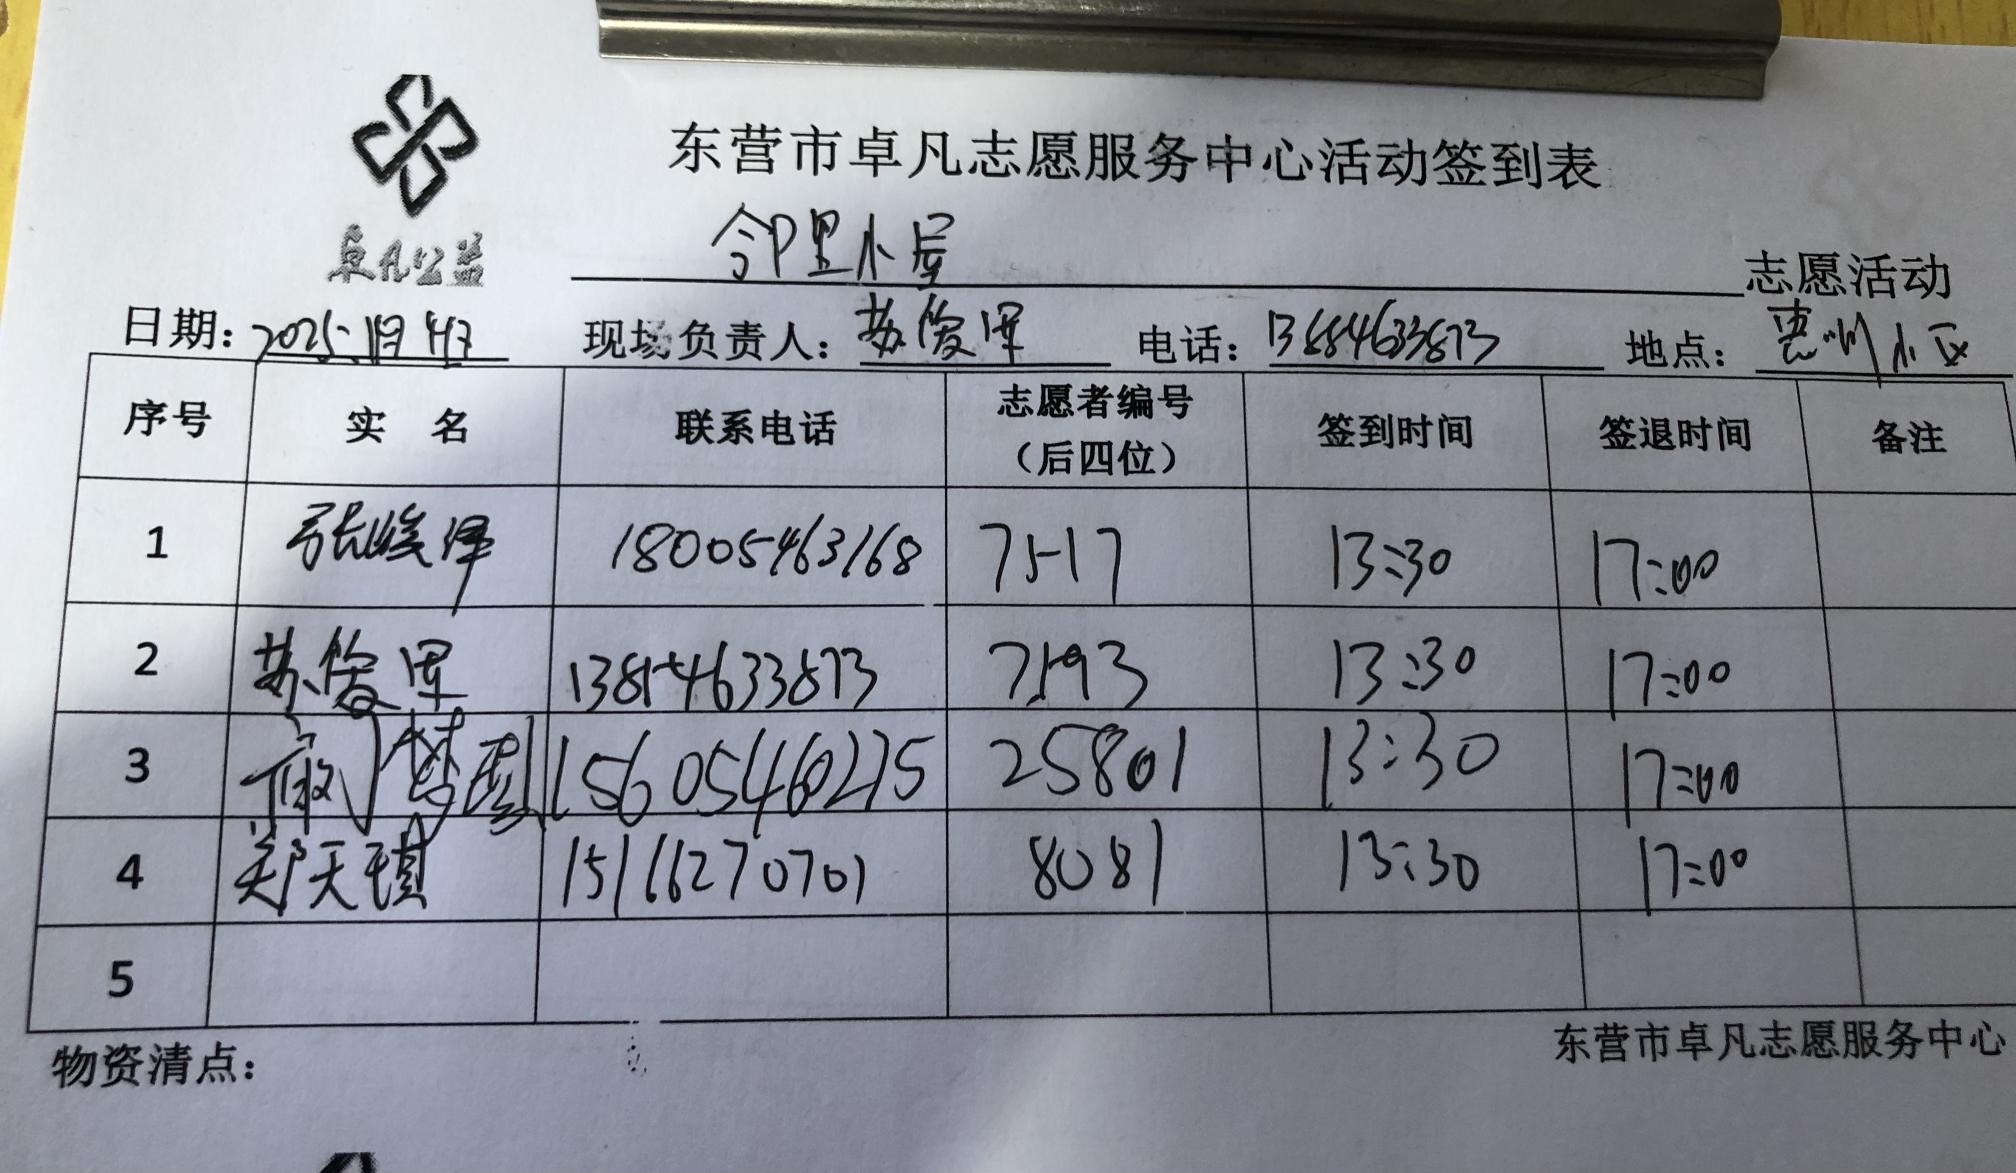 东营市卓凡志愿服务中心活动签到表
卓凡公益
邻里小屋 志愿活动
日期: 2025.1月4日 现场负责人: 苏俊军 电话: 地点: 惠州小区
序号 实 名 联系电话 志愿者编号（后四位） 签到时间 签退时间 备注
1 张峻泽 18005463168 7517 13:30 17:00
2 苏俊军 13854633873 7593 13:30 17:00
3 15605460275 25801 13:30 17:00
4 郑天琪 15166270701 8081 13:30 17:00
5
物资清点: 东营市卓凡志愿服务中心